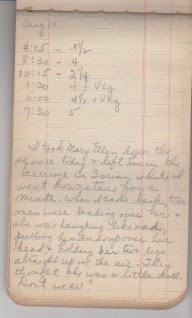 Aug 12
4:15 - 3½
8:30 - 4
10:15 - 2¼
1:30 - + Veg
5:00 4½ + Veg
7:30 5
I took Mary Ellen down the
square today & left her in the
carriage in while I
went downstairs for a
minute. When I came back, two
men were bending over her &
she was laughing like mad,
pulling her over her
head & holding her two legs
straight up in the air. They
thought she was a little doll.
Don't we all?